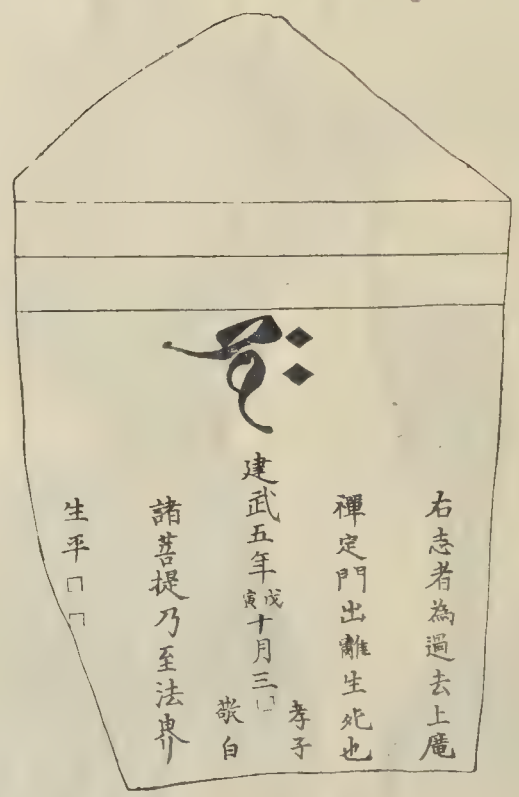 右志者為過去上廣
禪定門出離生死也
孝子
建武五年戊寅十月三□
敬白
諸菩提乃至法界
生平□□